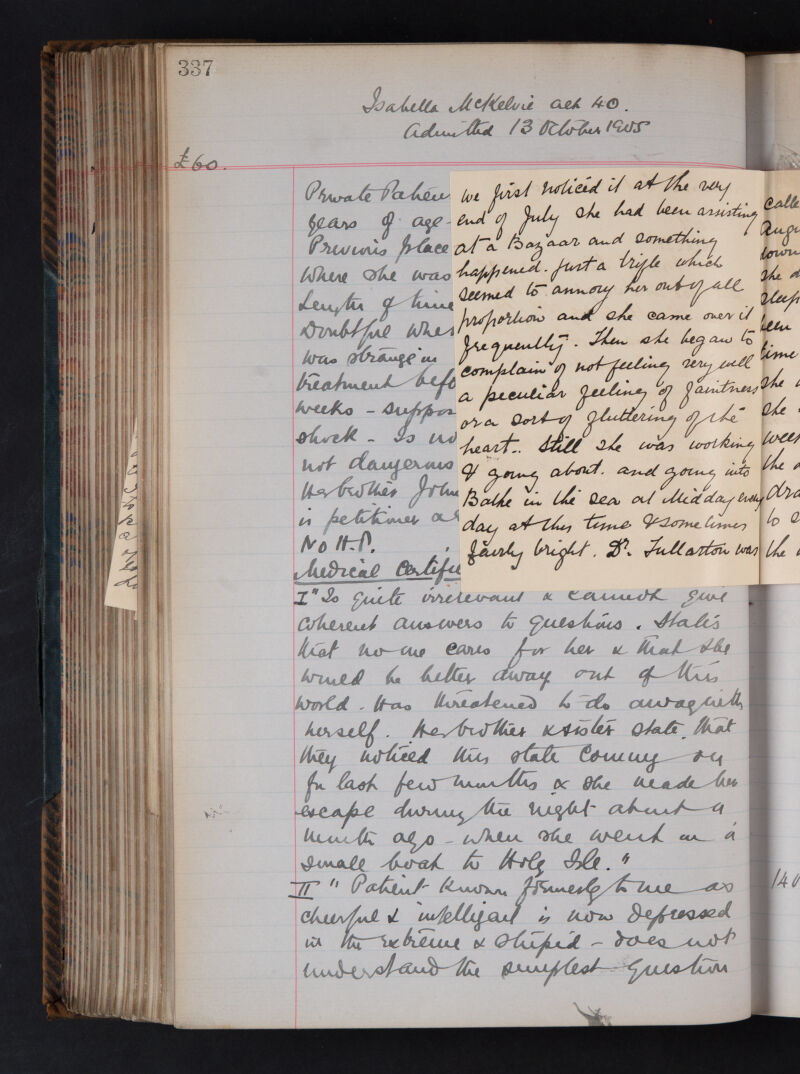 337
Isabella McKelvie aet 40.
Admitted 13 October 1905
£60.
Private Patien
years of age
Previous place
where she was
Length of time
Doubtful whe
was strange in
treatment befo
weeks - suppos
shock - Is no
not dangerous
Her brother John
is petitioner a
No H.P.
Medical Certifi
we first noticed it at the very
end of July she had been assisting
at a Bazaar and something
happened. Just a trifle which
seemed to annoy her out of all
proportion and she came over it
frequently. Then she began to
complain of not feeling very well
a peculiar feeling of faintness
or a sort of fluttering of the
heart.. Still she was working
& going about. and going into
Bathe in the sea at Midday every
day at this time & sometimes
fairly bright. Dr. Fullarton was
calle
Augu
down
she
sleep
been
time
she
she
week
the
dra
to s
the
I" Is quite irrelevant & cannot give
coherent answers to questions. States
that no one cares for her & that she
would be better away out of this
world. Has threatened to do away with
herself. Her brother & sister state, that
they noticed this state coming on
for last few months & she made her
escape during the night about a
month ago - when she went in a
small boat to Holy Isle."
II " Patient known formerly to me as
cheerful & intelligent is now depressed
in the extreme & stupid - does not
understand the simplest question
140